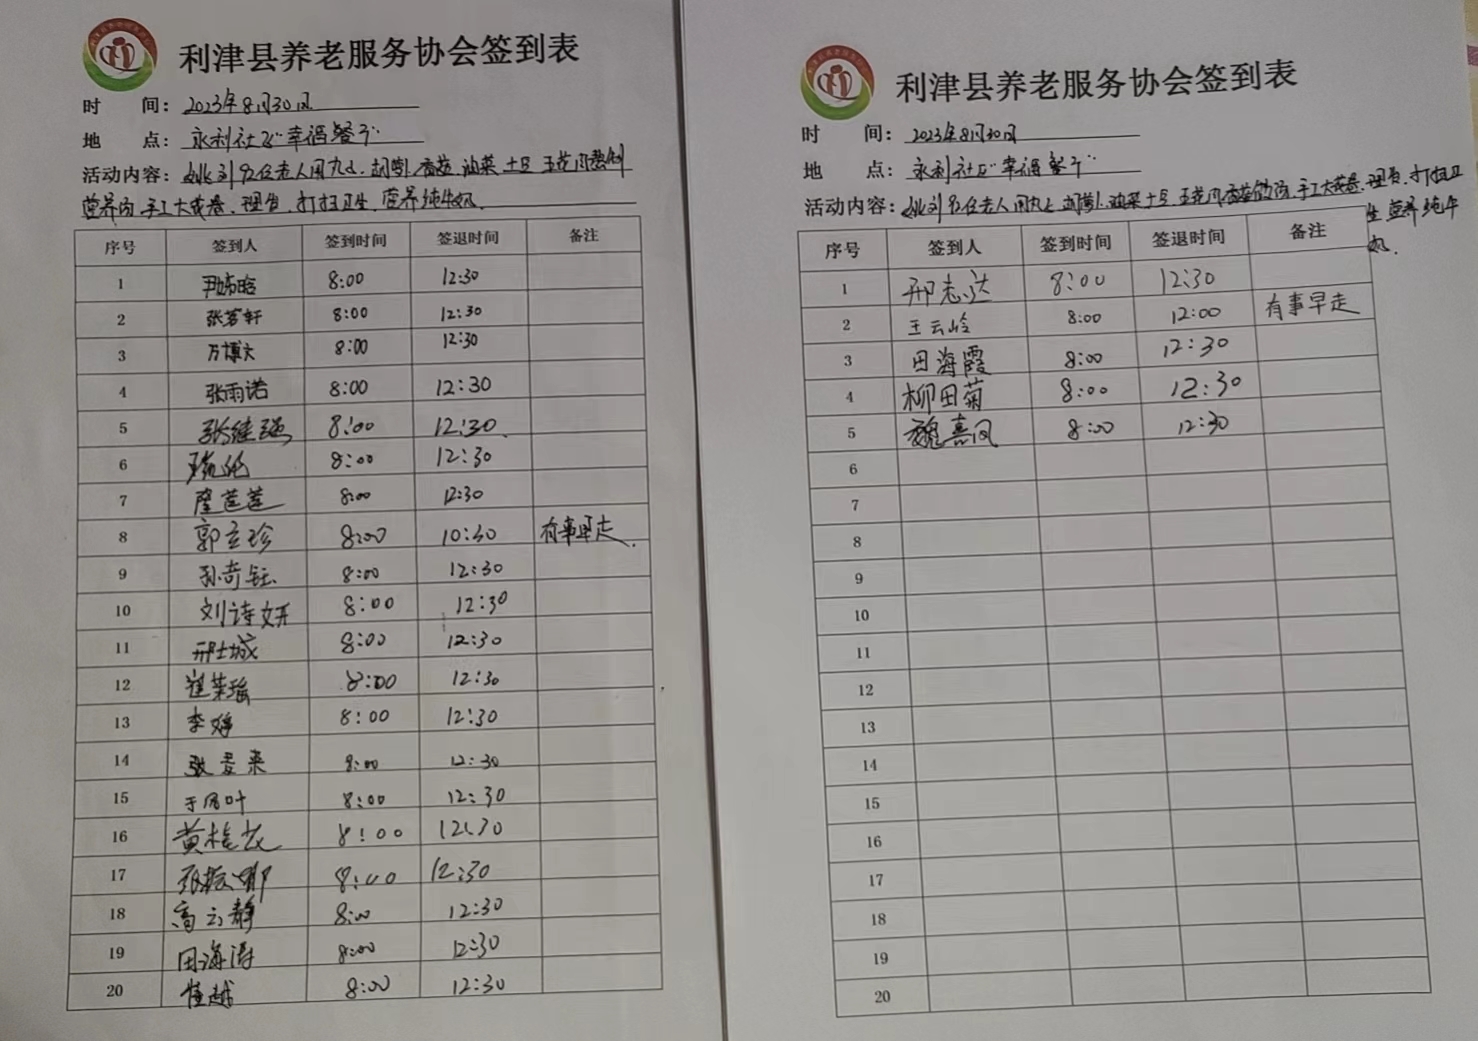 利津县养老服务协会签到表
时 间: 2023年8月30日
地 点: 永利社区"幸福餐厅"
活动内容: 老人用 油菜 土豆
手工大 理发、打扫卫生、营养纯牛奶.
序号 签到人 签到时间 签退时间 备注
1 8:00 12:30
2 张茗轩 8:00 12:30
3 万博文 8:00 12:30
4 张雨诺 8:00 12:30
5 张继强 8:00 12:30
6 8:00 12:30
7 莲莲 8:00 12:30
8 郭立珍 8:00 10:30 有事早走.
9 孙奇钰 8:00 12:30
10 刘诗妍 8:00 12:30
11 邢士城 8:00 12:30
12 崔荣瑶 8:00 12:30
13 李婷 8:00 12:30
14 张爱来 8:00 12:30
15 于凤叶 8:00 12:30
16 黄桂 8:00 12:30
17 张 8:00 12:30
18 高云静 8:00 12:30
19 田海涛 8:00 12:30
20 崔越 8:00 12:30
利津县养老服务协会签到表
时 间: 2023年8月30日
地 点: 永利社区"幸福餐厅"
活动内容: 老人用 油菜 土豆 手工大 理发、打扫卫
生 营养纯牛
奶.
序号 签到人 签到时间 签退时间 备注
1 邢志达 8:00 12:30
2 王云岭 8:00 12:00 有事早走
3 田海霞 8:00 12:30
4 柳田菊 8:00 12:30
5 魏喜凤 8:00 12:30
6
7
8
9
10
11
12
13
14
15
16
17
18
19
20